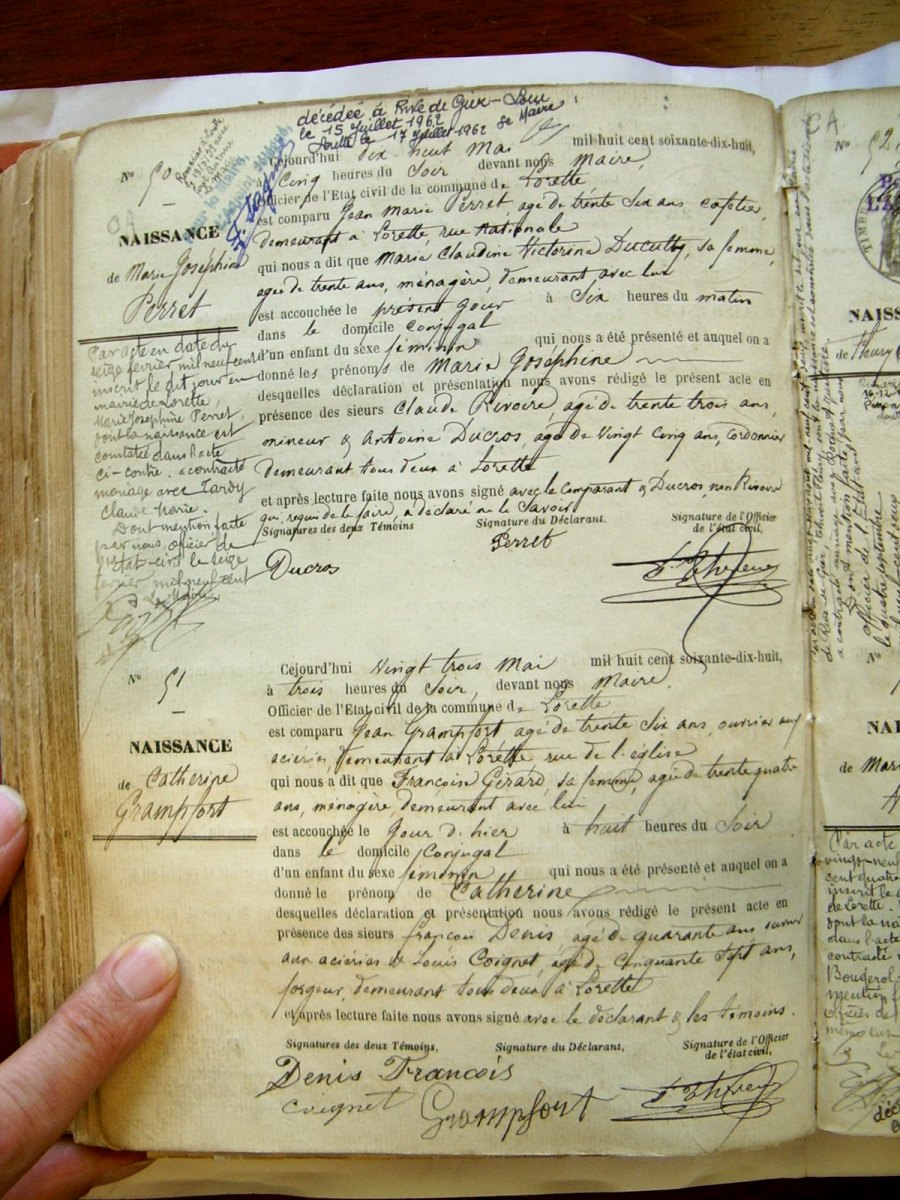 décédée à Rive de Gier - Loire
le 15 Juillet 1962
Lorette le 17 Juillet 1962 Le Maire
N° 50
NAISSANCE
de Marie Joséphine
Perret
Par acte en date du
seize février mil neuf cent
inscrit le dit jour en
mairie de Lorette,
Marie Joséphine Perret,
dont la naissance est
constatée dans l'acte
ci-contre, a contracté
mariage avec Tardy
Claude Marie.
Dont mention faite
par nous, officier de
l'Etat-civil le seize
février mil neuf cent
Le Maire
Cejourd'hui dix-huit Mai mil huit cent soixante-dix-huit,
à Cinq heures du Soir devant nous Maire,
Officier de l'Etat civil de la commune de Lorette
est comparu Jean Marie Perret agé de trente Six ans cafetier,
demeurant à Lorette, rue Nationale
qui nous a dit que Marie Claudine Victorine Ducutty, sa femme,
agée de trente ans, ménagère, demeurant avec lui
est accouchée le présent jour à Six heures du matin
dans le domicile Conjugal
d'un enfant du sexe féminin qui nous a été présenté et auquel on a
donné les prénoms de Marie Joséphine
desquelles déclaration et présentation nous avons rédigé le présent acte en
présence des sieurs Claude Rivoire, agé de trente trois ans,
mineur & Antoine Ducros, agé de Vingt Cinq ans, Cordonnier
demeurant tous deux à Lorette
et après lecture faite nous avons signé avec le Comparant & Ducros, non Rivoire
qui, requis de le faire, a déclaré ne le Savoir
Signatures des deux Témoins Signature du Déclarant. Signature de l'Officier
de l'état civil,
Perret
Ducros
N° 51
NAISSANCE
de Catherine
Grampfort
Cejourd'hui Vingt trois Mai mil huit cent soixante-dix-huit,
à trois heures du Soir, devant nous Maire,
Officier de l'Etat civil de la commune de Lorette
est comparu Jean Grampfort agé de trente Six ans, ouvrier aux
aciéries, demeurant à Lorette, rue de l'église
qui nous a dit que Françoise Gérard, sa femme, agée de trente quatre
ans, ménagère, demeurant avec lui
est accouchée le Jour d'hier à huit heures du Soir
dans le domicile Conjugal
d'un enfant du sexe féminin qui nous a été présenté et auquel on a
donné le prénom de Catherine
desquelles déclaration et présentation nous avons rédigé le présent acte en
présence des sieurs françois Denis agé de quarante ans ouvrier
aux aciéries & Louis Coignet, agé de Cinquante Sept ans,
forgeur, demeurant tous deux à Lorette
et après lecture faite nous avons signé avec le déclarant & les témoins.
Signatures des deux Témoins, Signature du Déclarant, Signature de l'Officier
de l'état civil,
Denis François
Coignet Grampfort
N° 52
NAISS
de Fleury
N°
NAI
de Mar
Par acte
vingt-neuf
cent quatre
inscrit le
de Lorette.
dont la nai
dans l'acte
contracté
mention f
officier de